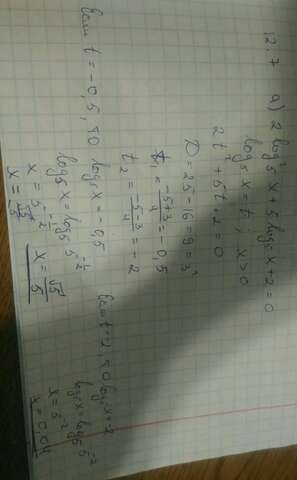 12.7 a) 2 log₅² x + 5 log₅ x + 2 = 0
log₅ x = t ; x > 0
2t² + 5t + 2 = 0
D = 25 - 16 = 9 = 3²
t₁ = (-5+3)/4 = -0,5
t₂ = (-5-3)/4 = -2
Если t = -0,5, то log₅ x = -0,5
log₅ x = log₅ 5^(-1/2)
x = 5^(-1/2)
x = √5/5
Если t = -2, то log₅ x = -2
log₅ x = log₅ 5⁻²
x = 5⁻²
x = 0,04